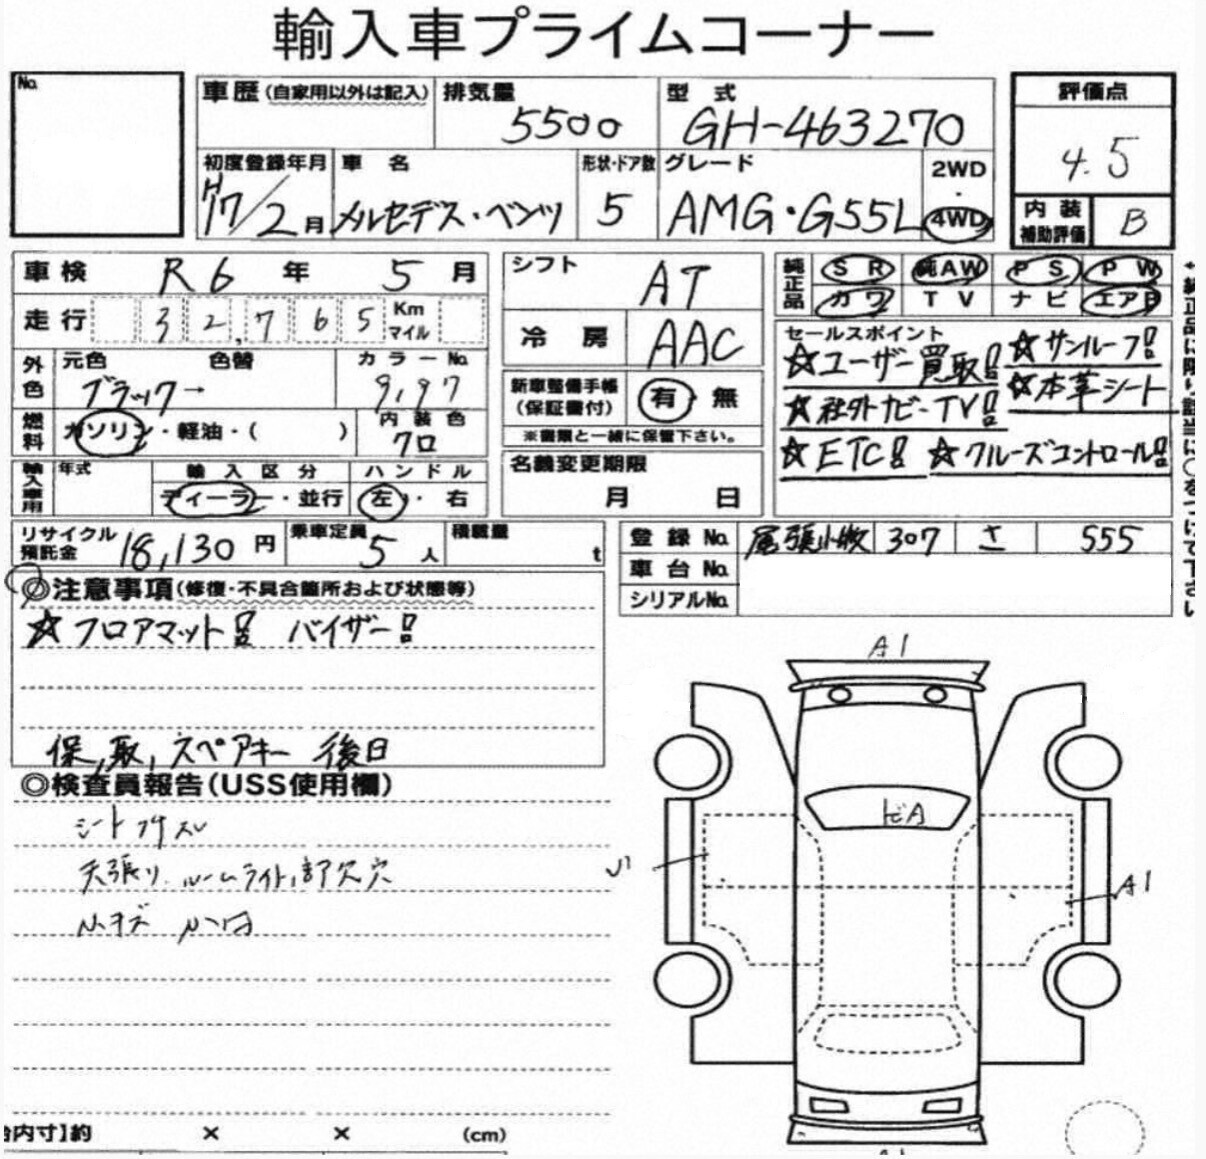 輸入車プライムコーナー
No.
車歴(自家用以外は記入) 排気量 型式 評価点
5500 GH-463270 4.5
初度登録年月 車名 形状・ドア数 グレード 2WD・4WD
H17/2月 メルセデス・ベンツ 5 AMG・G55L
内装補助評価 B
車検 R6年 5月
走行 32,765 Km マイル
外色 元色 色替 カラーNo.
ブラック→ 9197
燃料 ガソリン・軽油・( ) 内装色
クロ
輸入車用 年式 輸入区分 ハンドル
ディーラー・並行 左・右
シフト AT
冷房 AAC
新車整備手帳(保証書付) 有・無
※書類と一緒に保管下さい。
名義変更期限
月 日
純正品 SR 純AW PS PW
カワ TV ナビ エアB
セールスポイント
☆ユーザー買取!! ☆サンルーフ!!
☆社外ナビ・TV!! ☆本革シート
☆ETC!! ☆クルーズコントロール!!
リサイクル預託金 18,130円 乗車定員 5人 積載量 t
登録No. 尾張小牧 307 さ 555
車台No.
シリアルNo.
◎注意事項(修復・不具合箇所および状態等)
☆フロアマット!! バイザー!!
保,取,スペアキー 後日
◎検査員報告(USS使用欄)
シート
天張り、ルームライト
A1
A1
内寸】約 × × (cm)